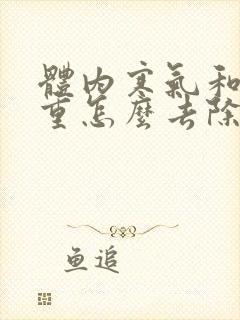 體內寒氣和
重怎麼去除
鱼追